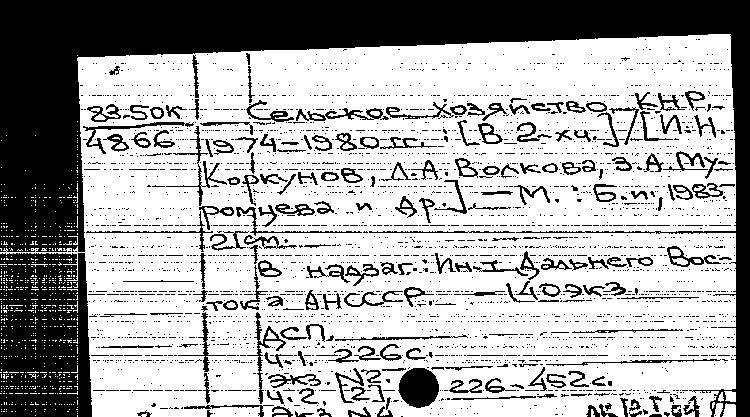 83-50К
4866
Сельское хозяйство КНР,
1974-1980 гг. : [В 2-х ч.] / [И.Н.
Коркунов, Л.А. Волкова, З.А. Му-
ромцева и др.]. — М. : Б.и., 1983.
21 см.
В надзаг.: Ин-т Дальнего Вос-
тока АН СССР. — 140 экз.
ДСП.
Ч.1. 226 с.
Экз. №2.
Ч.2. [2], 226-452 с.
Экз. №4